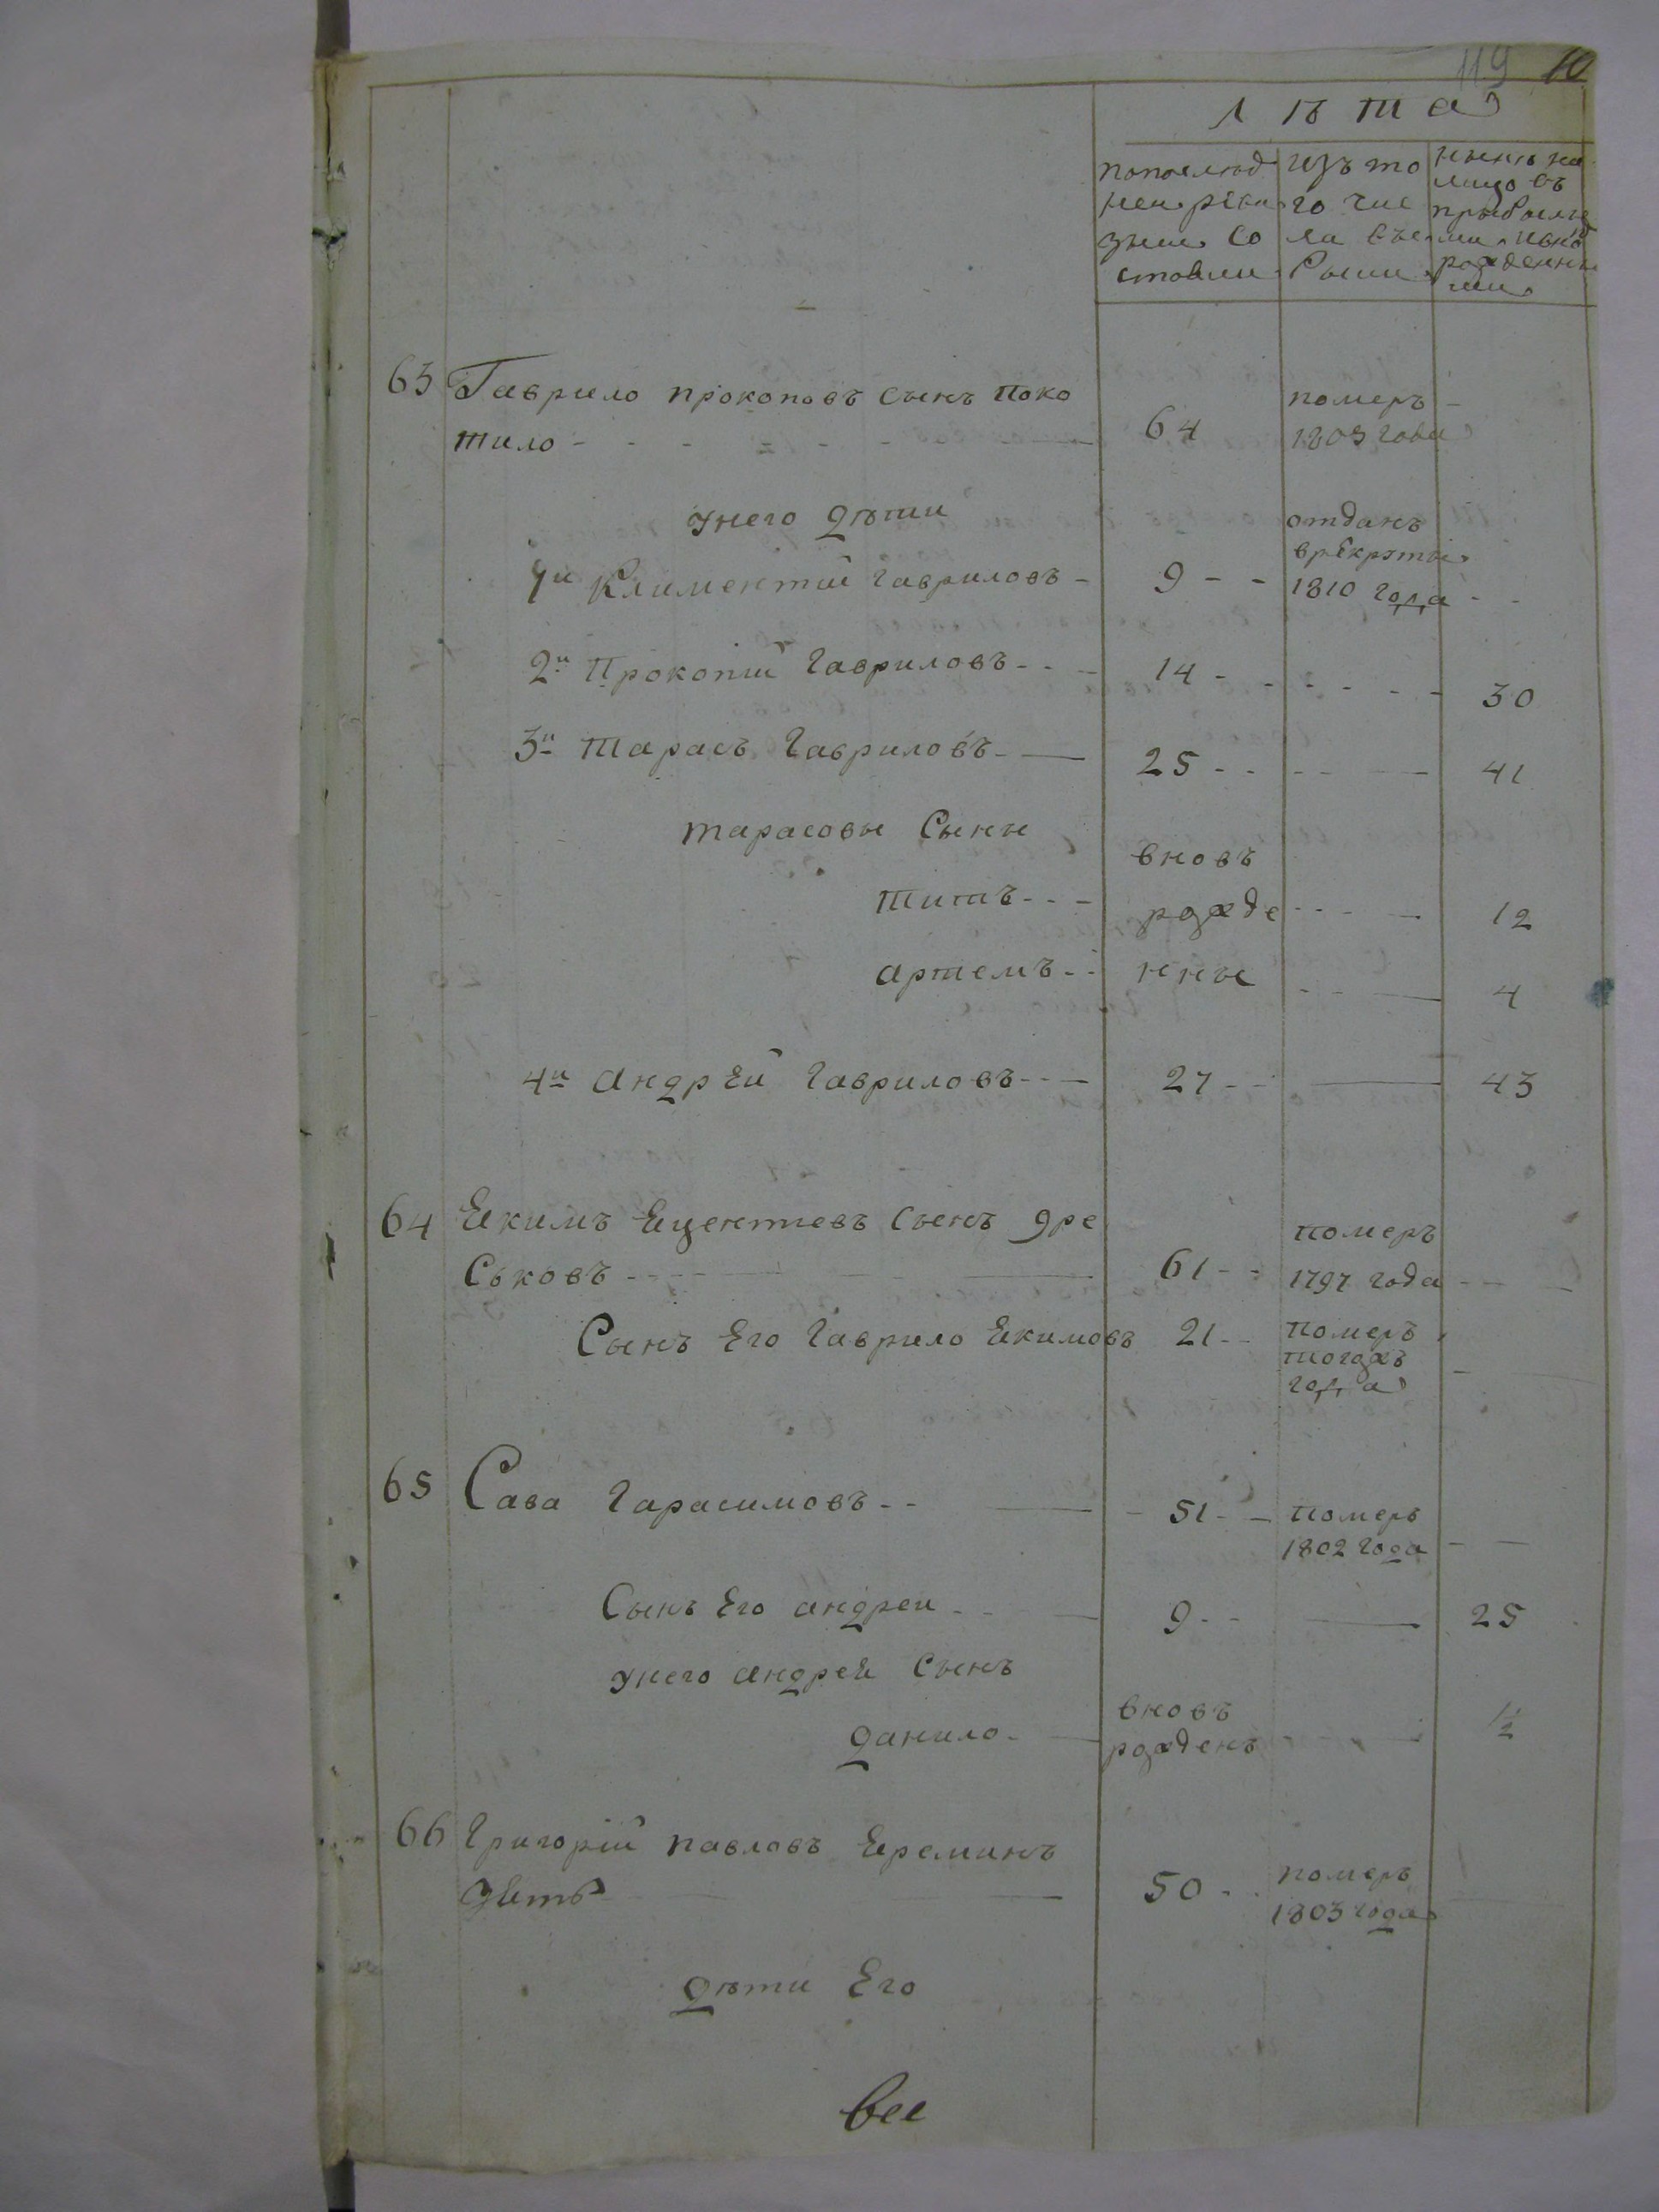 119 10
лѣта
попослѣд изъ то нынѣ на
ней реви го чис лицо съ
зіи со ла вы прибылы
стояли были ми и вно
рожденны
ми
63 Гаврило прокоповъ сынъ Поко
тило - - - - - - - 64 померъ - 1803 года
унего дѣти
1й Климентий Гавриловъ - 9 - - отданъ врекруты 1810 года - -
2й Прокопий Гавриловъ - - - 14 - - - - - - 30
3й Тарасъ Гавриловъ - — 25 - - - - — 41
Тарасовы Сыны
вновь
Титъ - - - рожде - - - — 12
артемъ - - нные - - — 4
4й андрей Гавриловъ - - — 27 - - — 43
64 Екимъ сынъ
61 - - померъ 1797 года - - —
Сынъ Его Гаврило Екимовъ 21 - - померъ тогожъ года -
65 Сава Гарасимовъ - - — - 51 - - померъ 1802 года - -
Сынъ Его андреи - - — 9 - - — 25
унего андрея Сынъ
данило - — вновь рожденъ 1/2
66 Григорий павловъ Ереминъ
зять — — 50 - - померъ 1803 года
дѣти Его
все